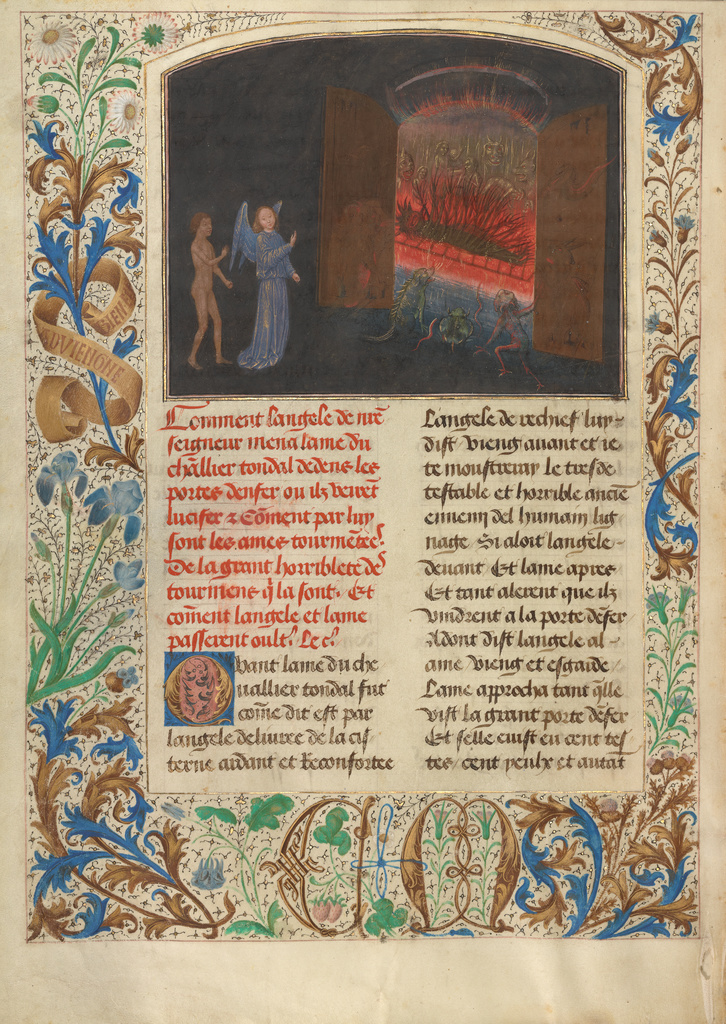 Comment langele de nr̃e
seigneur mena lame du
chãllier tondal dedens les
portes denfer ou ilz veirẽt
lucifer ⁊ Cõment par luy
sont les ames tourmẽtees
De la grant horriblete des
tourmens q̃ la sont. Et
coment langele et lame
passerent oultr̃ Le c̃
Quant lame du che
uallier tondal fut
cõme dit est par
langele deliuree de la cis
terne ardant et Reconfortee
Langele de rechief luy
dist vieng auant et ie
te monstreray le tresde
testable et horrible ancie
ennemy del humain lig
nage Si aloit langele
deuant Et lame apres
Et tant alerent que ilz
vindrent a la porte dẽfer
Adont dist langele al
ame vieng et esgarde
Lame approcha tant q̃lle
vist la grant porte dẽfer
Et selle euist eu cent tes
tes cent yeulx et autãt
BIEN
ADVIENGNE
C M